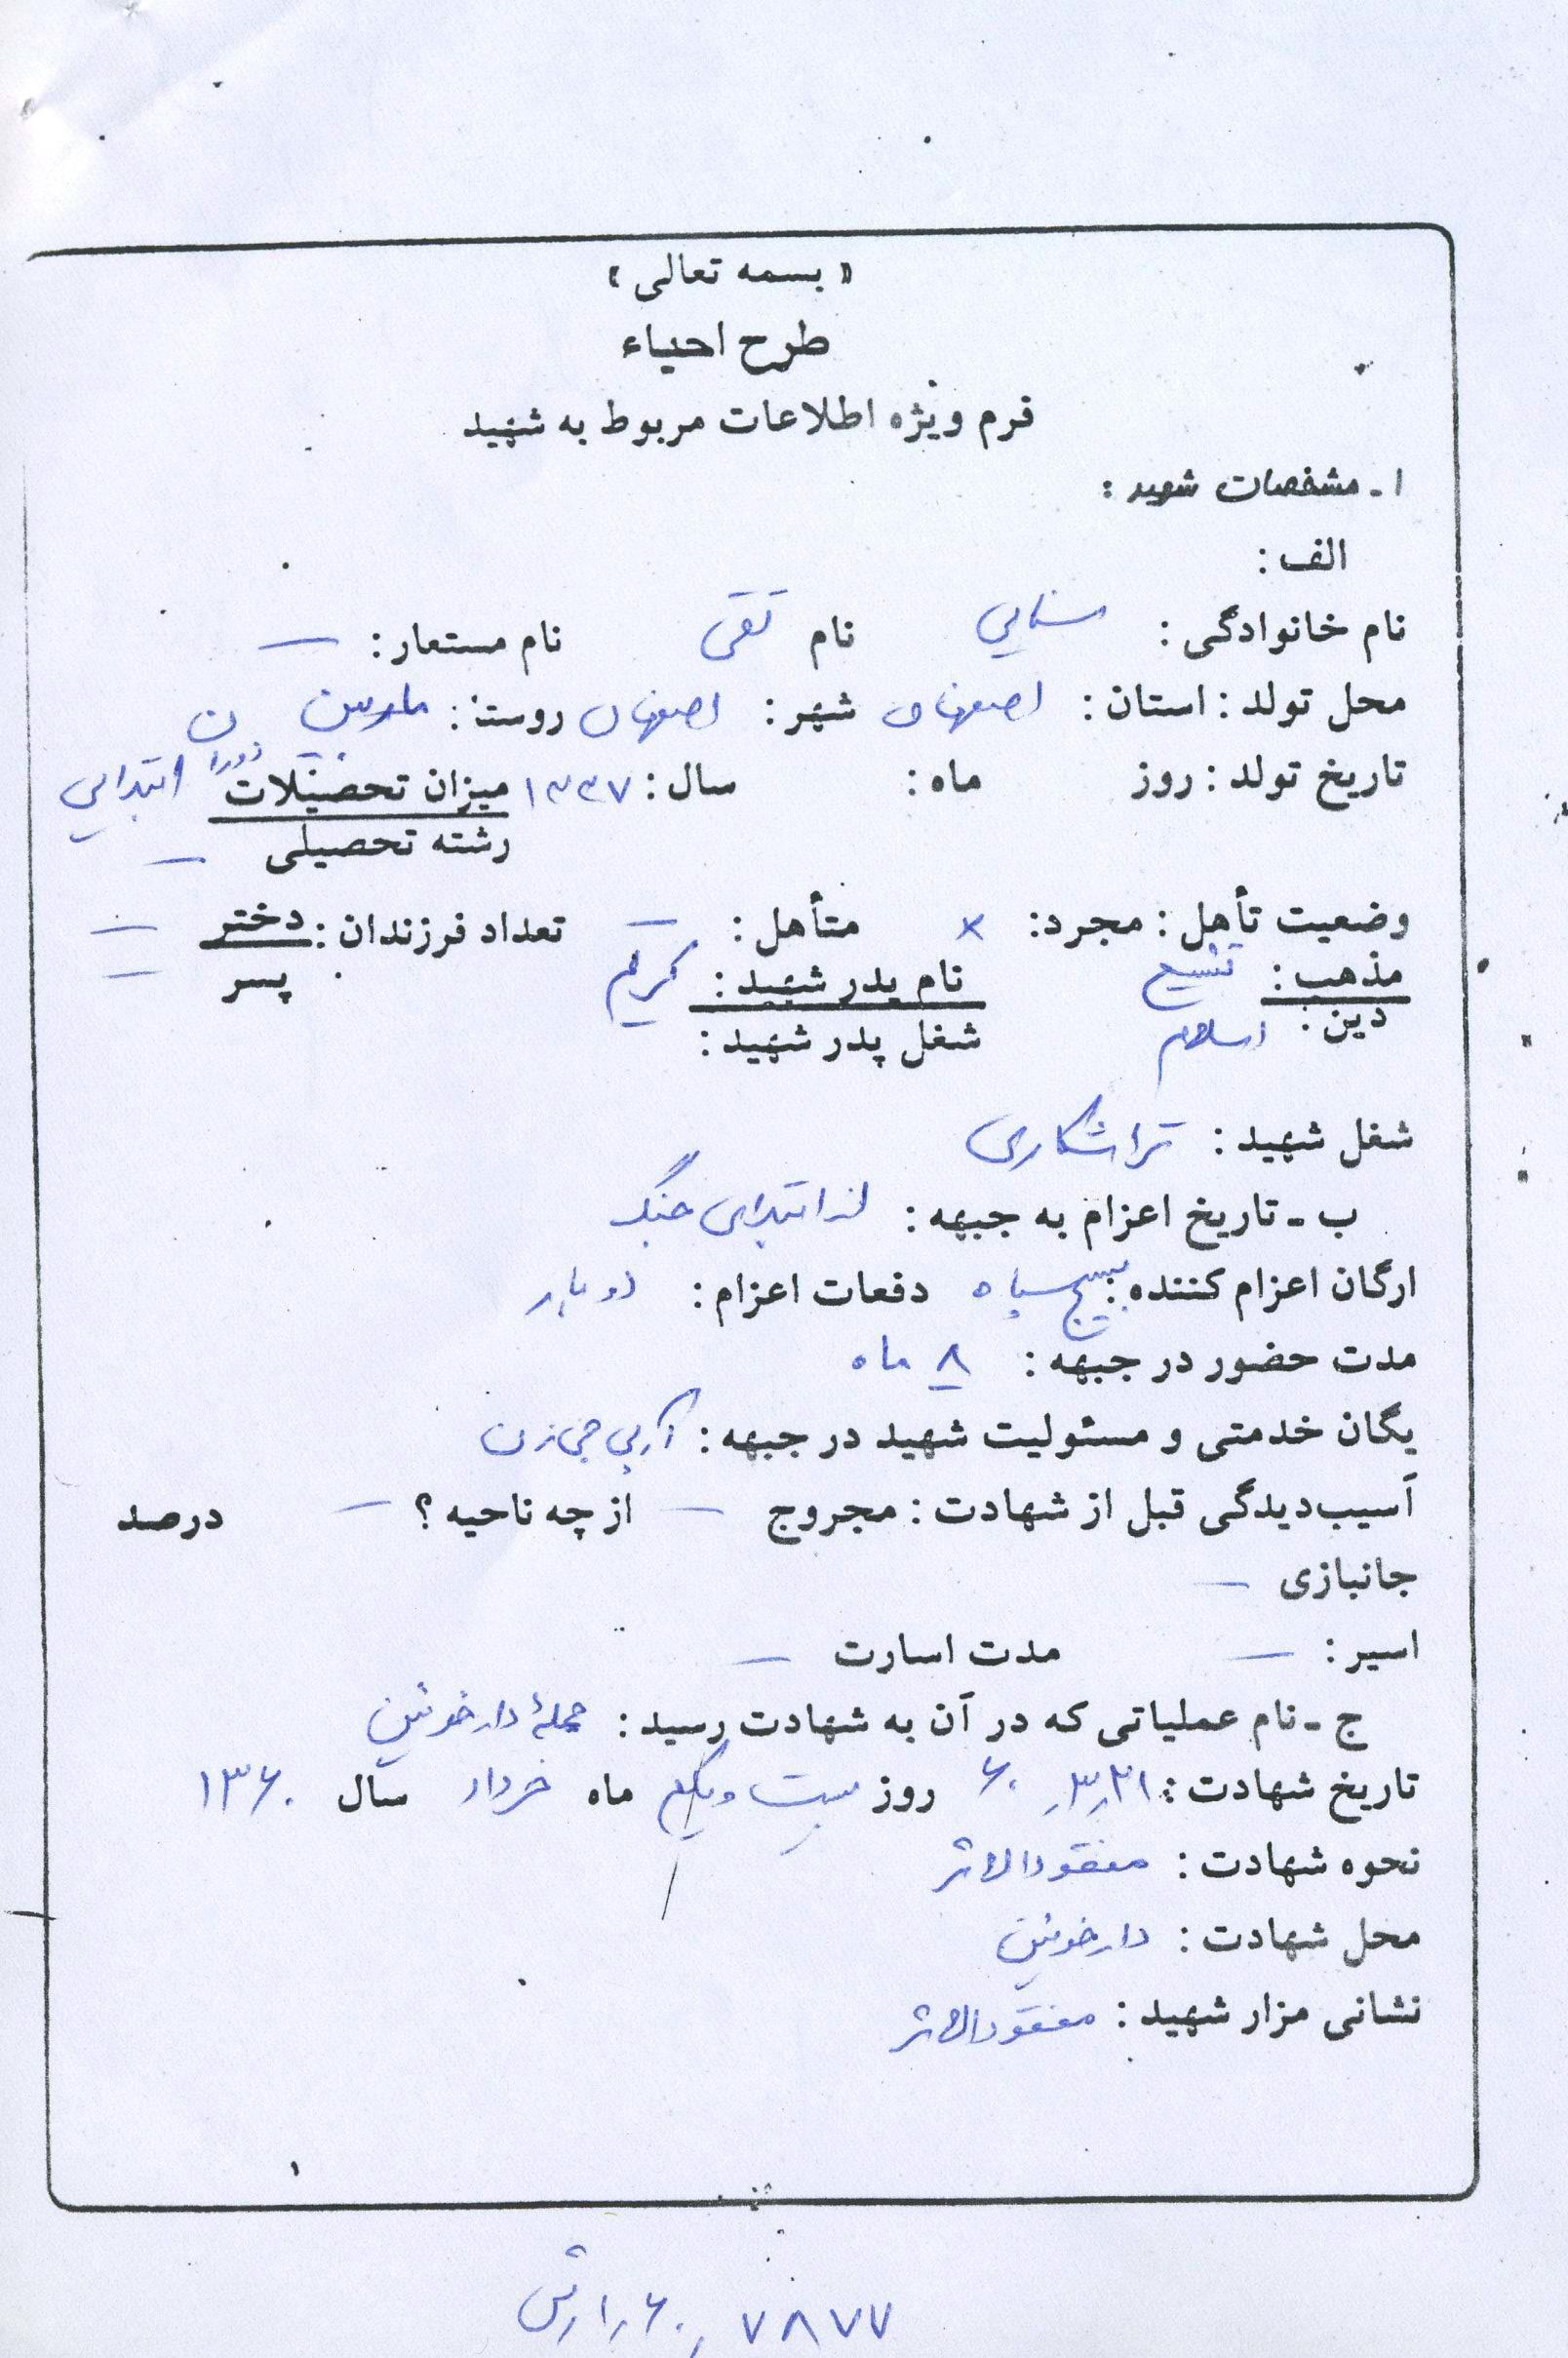 « بسمه تعالی »
طرح احیاء
فرم ویژه اطلاعات مربوط به شهید
۱ ـ مشخصات شهید :
الف :
نام خانوادگی : سنایی نام تقی نام مستعار : —
محل تولد : استان : اصفهان شهر : اصفهان روستا : ماربین
تاریخ تولد : روز ماه : سال : ۱۳۳۷ میزان تحصیلات ابتدایی
رشته تحصیلی —
وضعیت تأهل : مجرد : × متأهل : — تعداد فرزندان : دختر —
مذهب : تشیع نام پدر شهید : کریم پسر —
دین : اسلام شغل پدر شهید :
شغل شهید : تراشکاری
ب ـ تاریخ اعزام به جبهه : از ابتدای جنگ
ارگان اعزام کننده : بسیج سپاه دفعات اعزام : دو بار
مدت حضور در جبهه : ۸ ماه
یگان خدمتی و مسئولیت شهید در جبهه : آر پی جی زن
آسیب‌دیدگی قبل از شهادت : مجروح — از چه ناحیه ؟ — درصد
جانبازی —
اسیر : — مدت اسارت —
ج ـ نام عملیاتی که در آن به شهادت رسید : حملهٔ دارخوئین
تاریخ شهادت : ۶۰/۳/۲۱ روز بیست و یکم ماه خرداد سال ۱۳۶۰
نحوه شهادت : مفقودالاثر
محل شهادت : دارخوئین
نشانی مزار شهید : مفقودالاثر
۱
۷۸۷۷